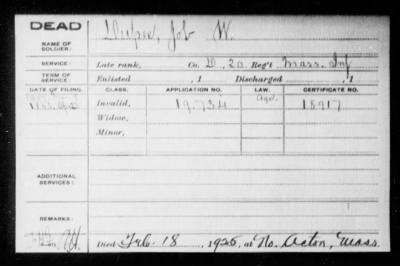 DEAD
NAME OF SOLDIER: Dupee, Job W.
SERVICE: Late rank, Co. D, 20 Reg't Mass. Inf
TERM OF SERVICE: Enlisted , 1 Discharged , 1
DATE OF FILING. CLASS. APPLICATION NO. LAW. CERTIFICATE NO.
Invalid, 19,734 18917
Widow,
Minor,
ADDITIONAL SERVICES:
REMARKS:
Died Feb. 18, 1925, at No. Acton, Mass.